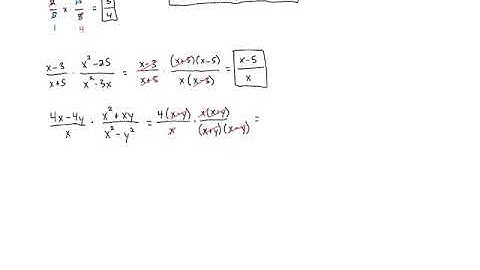 2/8 × 15/8 = 5/4
1 4
x-3/x+5 · x²-25/x²-3x = x-3/x+5 · (x+5)(x-5)/x(x-3) = x-5/x
4x-4y/x · x²+xy/x²-y² = 4(x-y)/x · x(x+y)/(x+y)(x-y) =